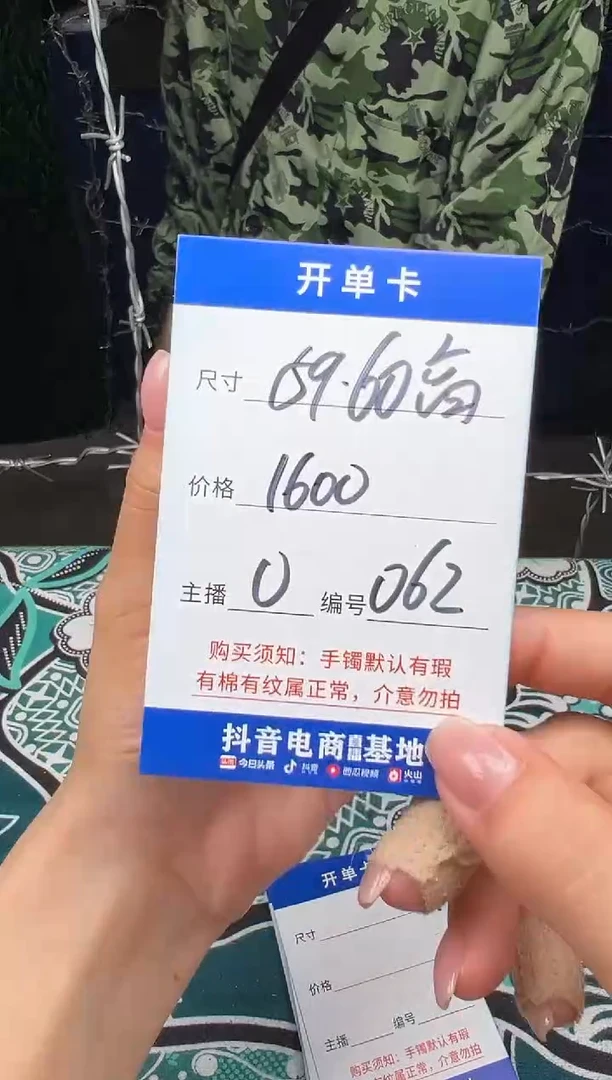 开单卡
尺寸 59.60高
价格 1600
主播 0 编号 062
购买须知：手镯默认有瑕
有棉有纹属正常，介意勿拍
抖音电商直播基地
头条 今日头条 抖音 西瓜视频 火山
开单
尺寸
价格
主播 编号
购买须知：手镯默认有瑕
有纹属正常，介意勿拍